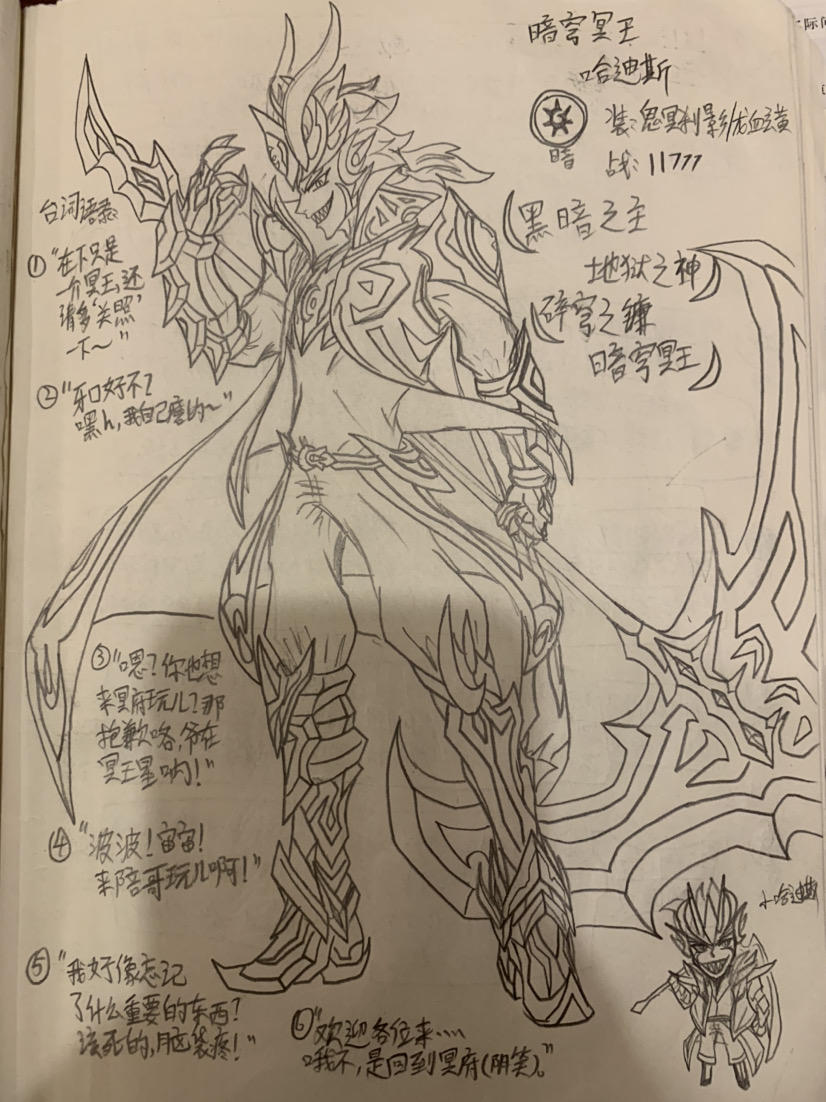 暗穹冥王
哈迪斯
暗
装:鬼冥利影/龙血玄黄
战:11777
黑暗之主
地狱之神
碎穹之镰
暗穹冥王
台词语录
①“在下只是
一介冥王,还
请多‘关照’
一下~”
②“牙口好不?
嘿h,我自己磨的~”
③“嗯?你也想
来冥府玩儿?那
抱歉咯,爷在
冥王星哟!”
④“波波!宙宙!
来陪哥玩儿啊!”
⑤“我好像忘记
了什么重要的东西?
该死的,脑袋疼!”
⑥“欢迎各位来……
哦不,是回到冥府(阴笑)。”
小哈迪斯
际间